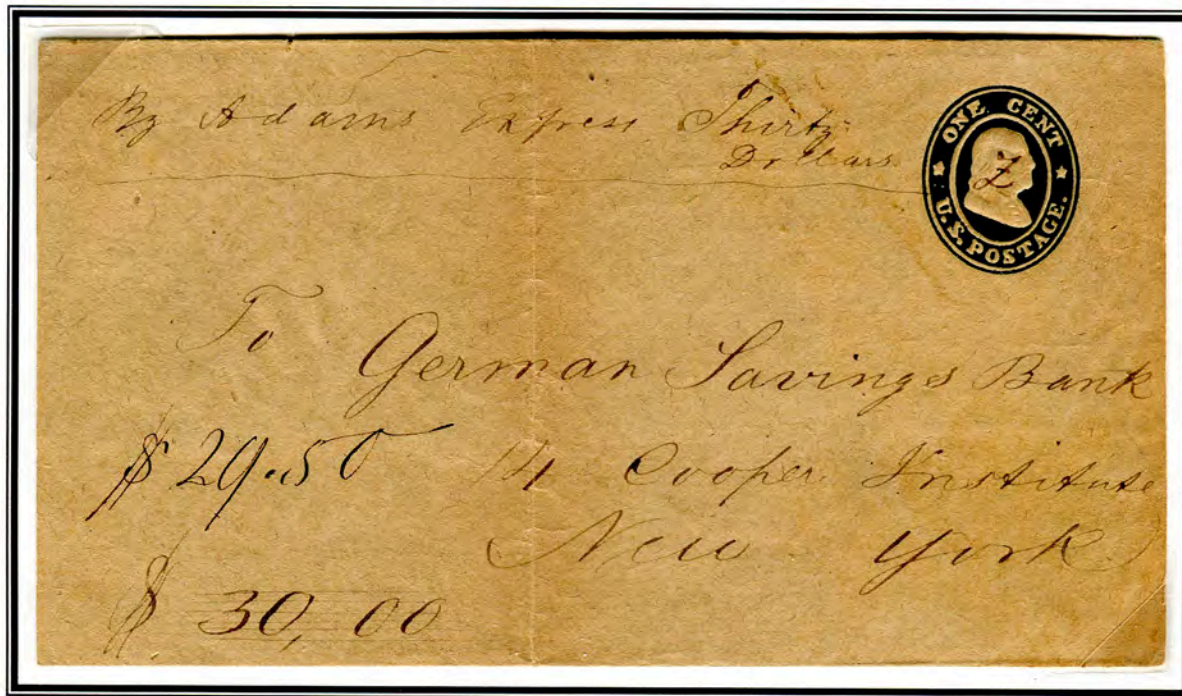 By Adams Express Thirty
Dollars
ONE CENT
U.S. POSTAGE.
Z
To
German Savings Bank
$ 29.50 14 Cooper Institute
New York
$ 30,00